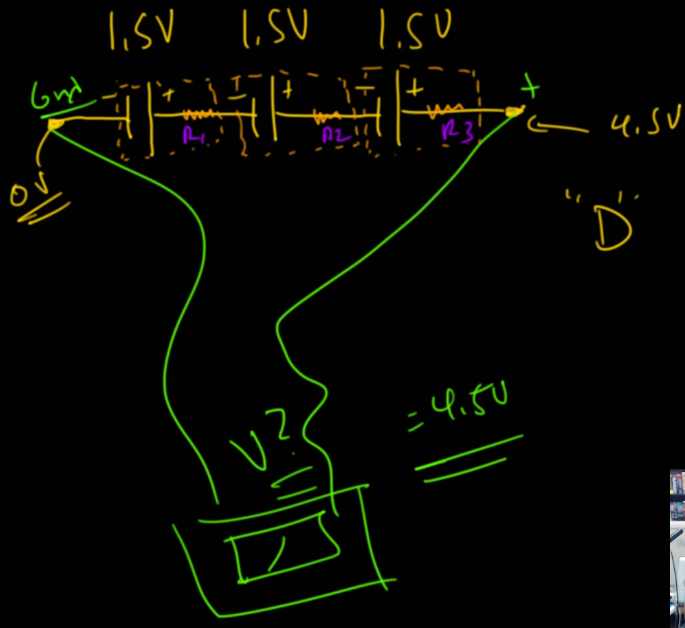 1.5V 1.5V 1.5V
Gnd - + - + - + +
R1 R2 R3
4.5V
0V
"D"
V?
= 4.5V